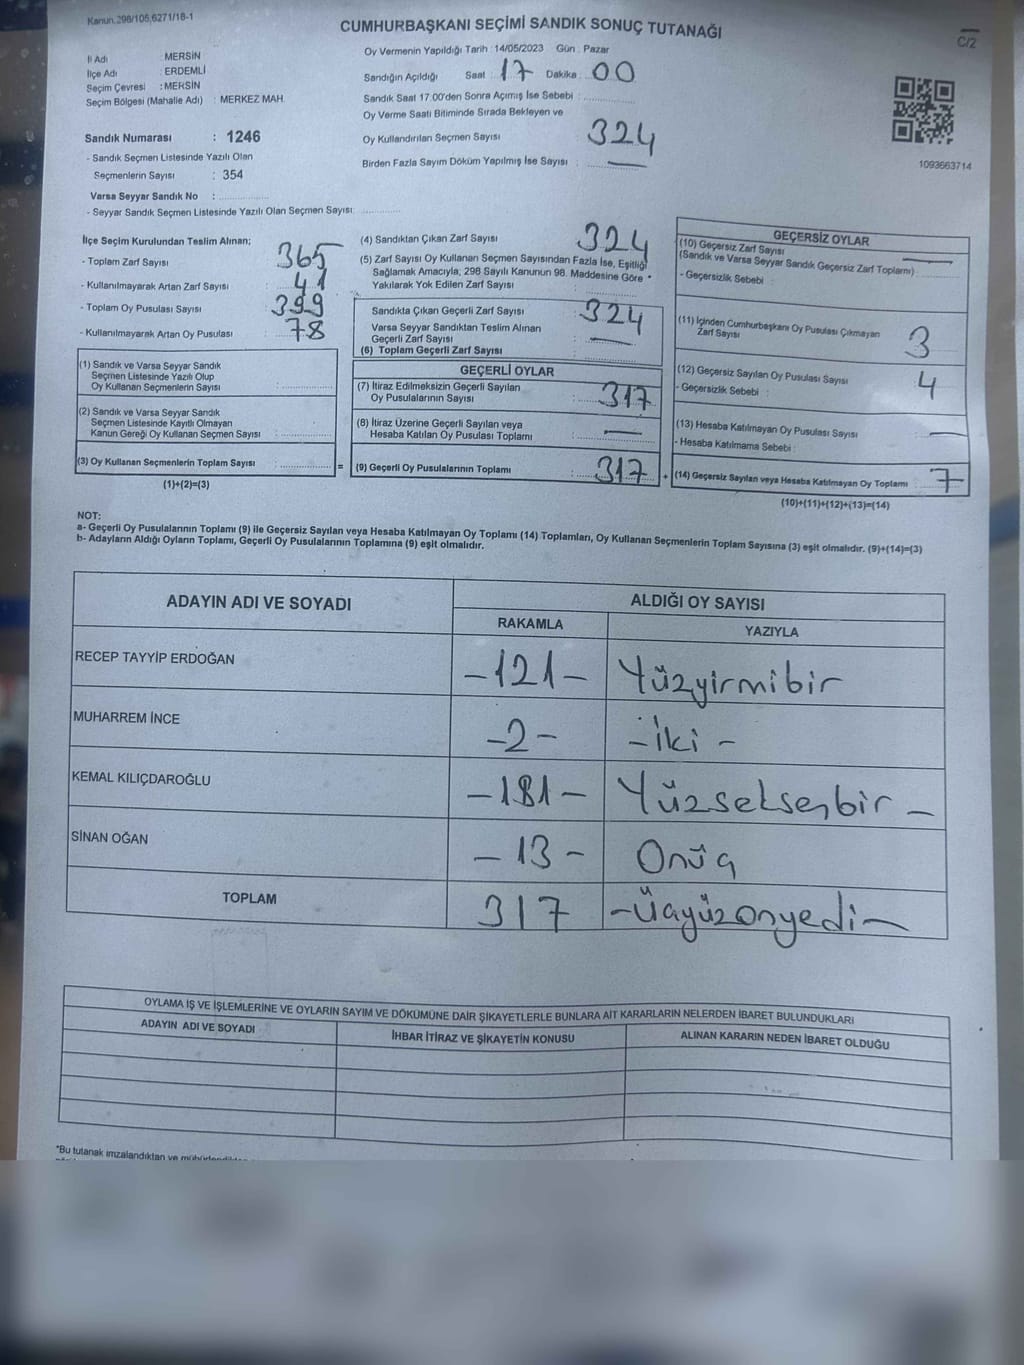 Kanun.298/105,6271/18-1
CUMHURBAŞKANI SEÇİMİ SANDIK SONUÇ TUTANAĞI
C/2
İl Adı : MERSİN
İlçe Adı : ERDEMLİ
Seçim Çevresi : MERSİN
Seçim Bölgesi (Mahalle Adı) : MERKEZ MAH.
Sandık Numarası : 1246
- Sandık Seçmen Listesinde Yazılı Olan
Seçmenlerin Sayısı : 354
Varsa Seyyar Sandık No :
- Seyyar Sandık Seçmen Listesinde Yazılı Olan Seçmen Sayısı:
Oy Vermenin Yapıldığı Tarih : 14/05/2023 Gün : Pazar
Sandığın Açıldığı Saat : 17 Dakika : 00
Sandık Saat 17.00'den Sonra Açılmış İse Sebebi :
Oy Verme Saati Bitiminde Sırada Bekleyen ve
Oy Kullandırılan Seçmen Sayısı : 324
Birden Fazla Sayım Döküm Yapılmış İse Sayısı : —
1093663714
İlçe Seçim Kurulundan Teslim Alınan;
- Toplam Zarf Sayısı : 365
- Kullanılmayarak Artan Zarf Sayısı : 41
- Toplam Oy Pusulası Sayısı : 399
- Kullanılmayarak Artan Oy Pusulası : 78
(1) Sandık ve Varsa Seyyar Sandık
Seçmen Listesinde Yazılı Olup
Oy Kullanan Seçmenlerin Sayısı :
(2) Sandık ve Varsa Seyyar Sandık
Seçmen Listesinde Kayıtlı Olmayan
Kanun Gereği Oy Kullanan Seçmen Sayısı :
(3) Oy Kullanan Seçmenlerin Toplam Sayısı : =
(1)+(2)=(3)
(4) Sandıktan Çıkan Zarf Sayısı : 324
(5) Zarf Sayısı Oy Kullanan Seçmen Sayısından Fazla İse, Eşitliği
Sağlamak Amacıyla; 298 Sayılı Kanunun 98. Maddesine Göre
Yakılarak Yok Edilen Zarf Sayısı :
Sandıkta Çıkan Geçerli Zarf Sayısı : 324
Varsa Seyyar Sandıktan Teslim Alınan
Geçerli Zarf Sayısı : —
(6) Toplam Geçerli Zarf Sayısı :
GEÇERLİ OYLAR
(7) İtiraz Edilmeksizin Geçerli Sayılan
Oy Pusulalarının Sayısı : 317
(8) İtiraz Üzerine Geçerli Sayılan veya
Hesaba Katılan Oy Pusulası Toplamı : —
(9) Geçerli Oy Pusulalarının Toplamı : 317 +
GEÇERSİZ OYLAR
(10) Geçersiz Zarf Sayısı —
(Sandık ve Varsa Seyyar Sandık Geçersiz Zarf Toplamı) :
- Geçersizlik Sebebi :
(11) İçinden Cumhurbaşkanı Oy Pusulası Çıkmayan
Zarf Sayısı : 3
(12) Geçersiz Sayılan Oy Pusulası Sayısı : 4
- Geçersizlik Sebebi :
(13) Hesaba Katılmayan Oy Pusulası Sayısı : —
- Hesaba Katılmama Sebebi :
(14) Geçersiz Sayılan veya Hesaba Katılmayan Oy Toplamı : 7
(10)+(11)+(12)+(13)=(14)
NOT:
a- Geçerli Oy Pusulalarının Toplamı (9) ile Geçersiz Sayılan veya Hesaba Katılmayan Oy Toplamı (14) Toplamları, Oy Kullanan Seçmenlerin Toplam Sayısına (3) eşit olmalıdır. (9)+(14)=(3)
b- Adayların Aldığı Oyların Toplamı, Geçerli Oy Pusulalarının Toplamına (9) eşit olmalıdır.
ADAYIN ADI VE SOYADI
ALDIĞI OY SAYISI
RAKAMLA YAZIYLA
RECEP TAYYİP ERDOĞAN -121- Yüzyirmibir
MUHARREM İNCE -2- -İki-
KEMAL KILIÇDAROĞLU -181- Yüzseksenbir-
SİNAN OĞAN -13- Onüç
TOPLAM 317 -Üçyüzonyedi-
OYLAMA İŞ VE İŞLEMLERİNE VE OYLARIN SAYIM VE DÖKÜMÜNE DAİR ŞİKAYETLERLE BUNLARA AİT KARARLARIN NELERDEN İBARET BULUNDUKLARI
ADAYIN ADI VE SOYADI İHBAR İTİRAZ VE ŞİKAYETİN KONUSU ALINAN KARARIN NEDEN İBARET OLDUĞU
"Bu tutanak imzalandıktan ve